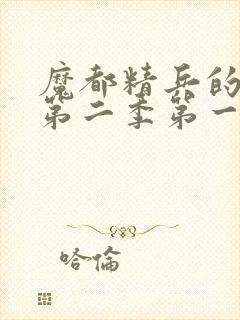 魔都精兵的
第二季第一
哈倫